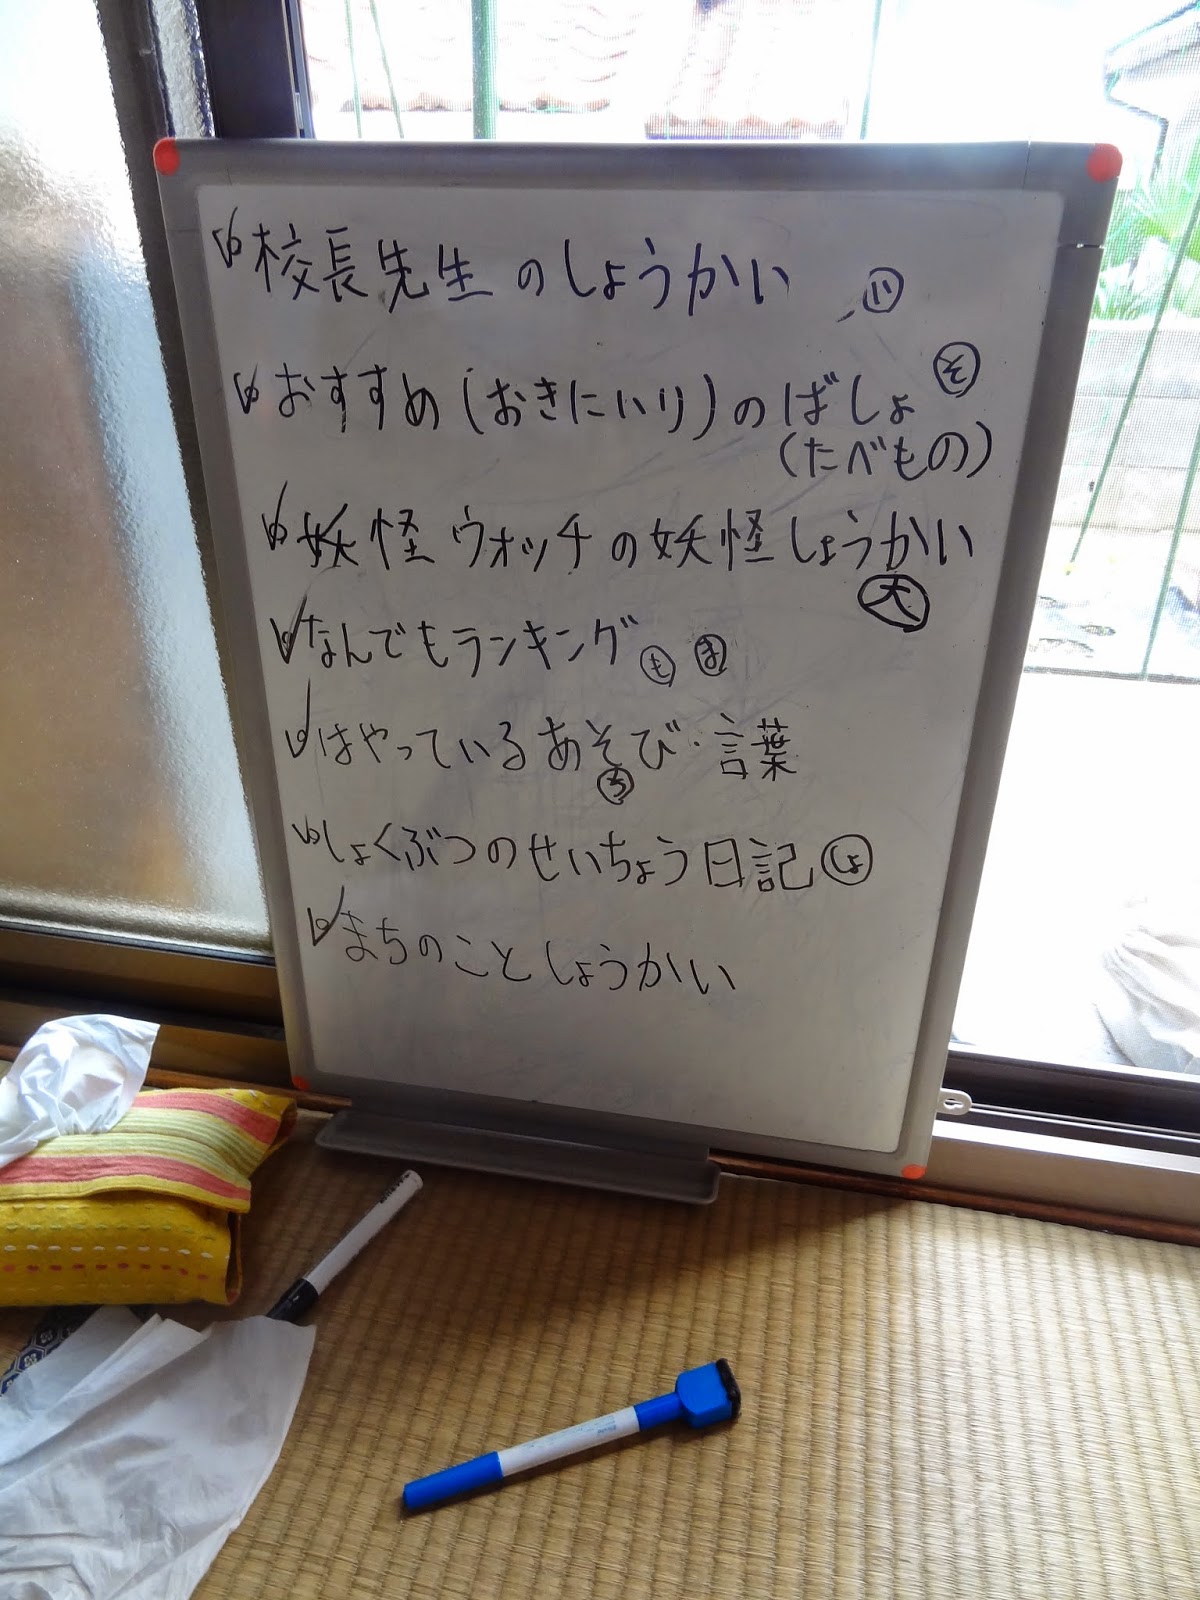 校長先生のしょうかい (い)
おすすめ(おきにいり)のばしょ (そ)
(たべもの)
妖怪ウォッチの妖怪しょうかい
(大)
なんでもランキング (も) (ま)
はやっているあそび・言葉
(ち)
しょくぶつのせいちょう日記 (しょ)
まちのことしょうかい